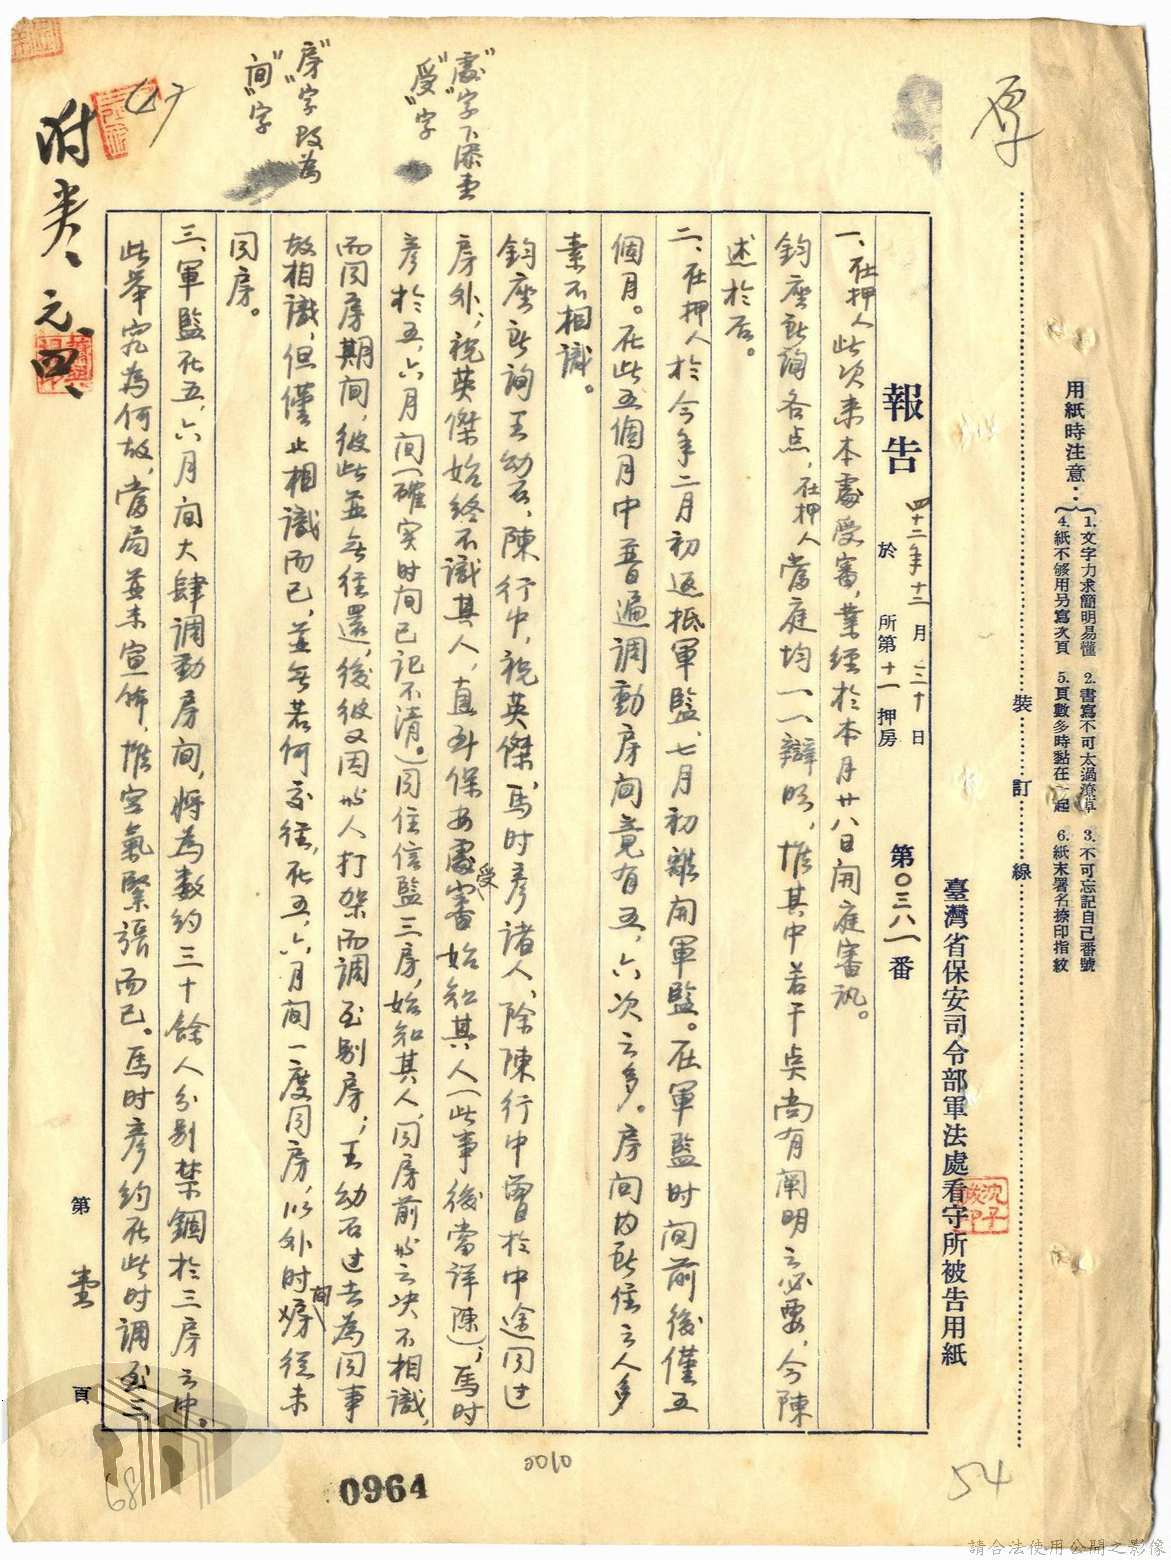 用紙時注意：
1.文字力求簡明易懂 2.書寫不可太過潦草 3.不可忘記自己番號
4.紙不够用另寫次頁 5.頁數多時黏在一起 6.紙末署名捺印指紋
裝 訂 線
臺灣省保安司令部軍法處看守所被告用紙
沈子
報告 四十二年十二月三十日
於 所第十一押房
第〇三八一番
一、在押人此次来本處受審，業經於本月廿八日開庭審訊。
鈞座所詢各点，在押人當庭均一一辯明，惟其中若干点尚有闡明之必要，今陳
述於后。
二、在押人於今年二月初返抵軍監，七月初離開軍監。在軍監时间前後僅五
個月。在此五個月中普遍調動房间竟有五，六次之多。房间内所住之人多
素不相識。
鈞座所詢王幼石，陳行中，祝英傑，馬时彥諸人，除陳行中曾於中途同过
房外，祝英傑始終不識其人，直到保安處受審始知其人（此事後當详陳），馬时
彥於五，六月间（確实时间已记不清。）同住信監三房，始知其人，同房前与之决不相識，
而同房期间，彼此並無往還，後彼又因与人打架而調至别房；王幼石过去為同事
故相識，但僅止相識而已，並無若何交往，在五，六月间一度同房，以外时间從未
同房。
三、軍監在五，六月间大肆調動房间，将為数约三十餘人分别禁錮於三房之中。
此举究為何故，當局並未宣佈，惟空氣緊張而已。馬时彥约在此时調至三
"處"字下添壹
"受"字
"房"字改為
"间"字
附卷元、四、
第 壹 頁
68
0964
0010
54
請合法使用公開之影像